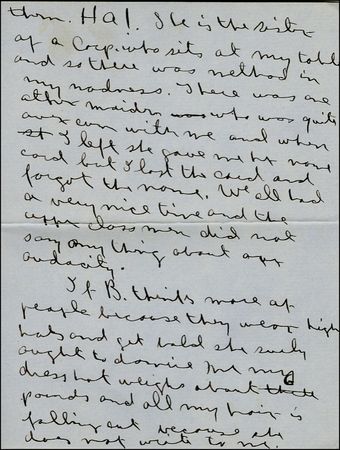 thom. HA! She is the sister
of a Corp. who sits at my table
and so there was method in
my madness. There was one
other maiden who was quite
with me and when
I left she gave me her name
card but I lost the card and
forgot the name. We all had
a very nice time and the
upper class men did not
say any thing about our
audacity.
If B. thinks more of
people because they wear high
hats and get bald she surely
ought to me my
dress hat weighs about
pounds and all my hair is
falling out because she
does not write to me.